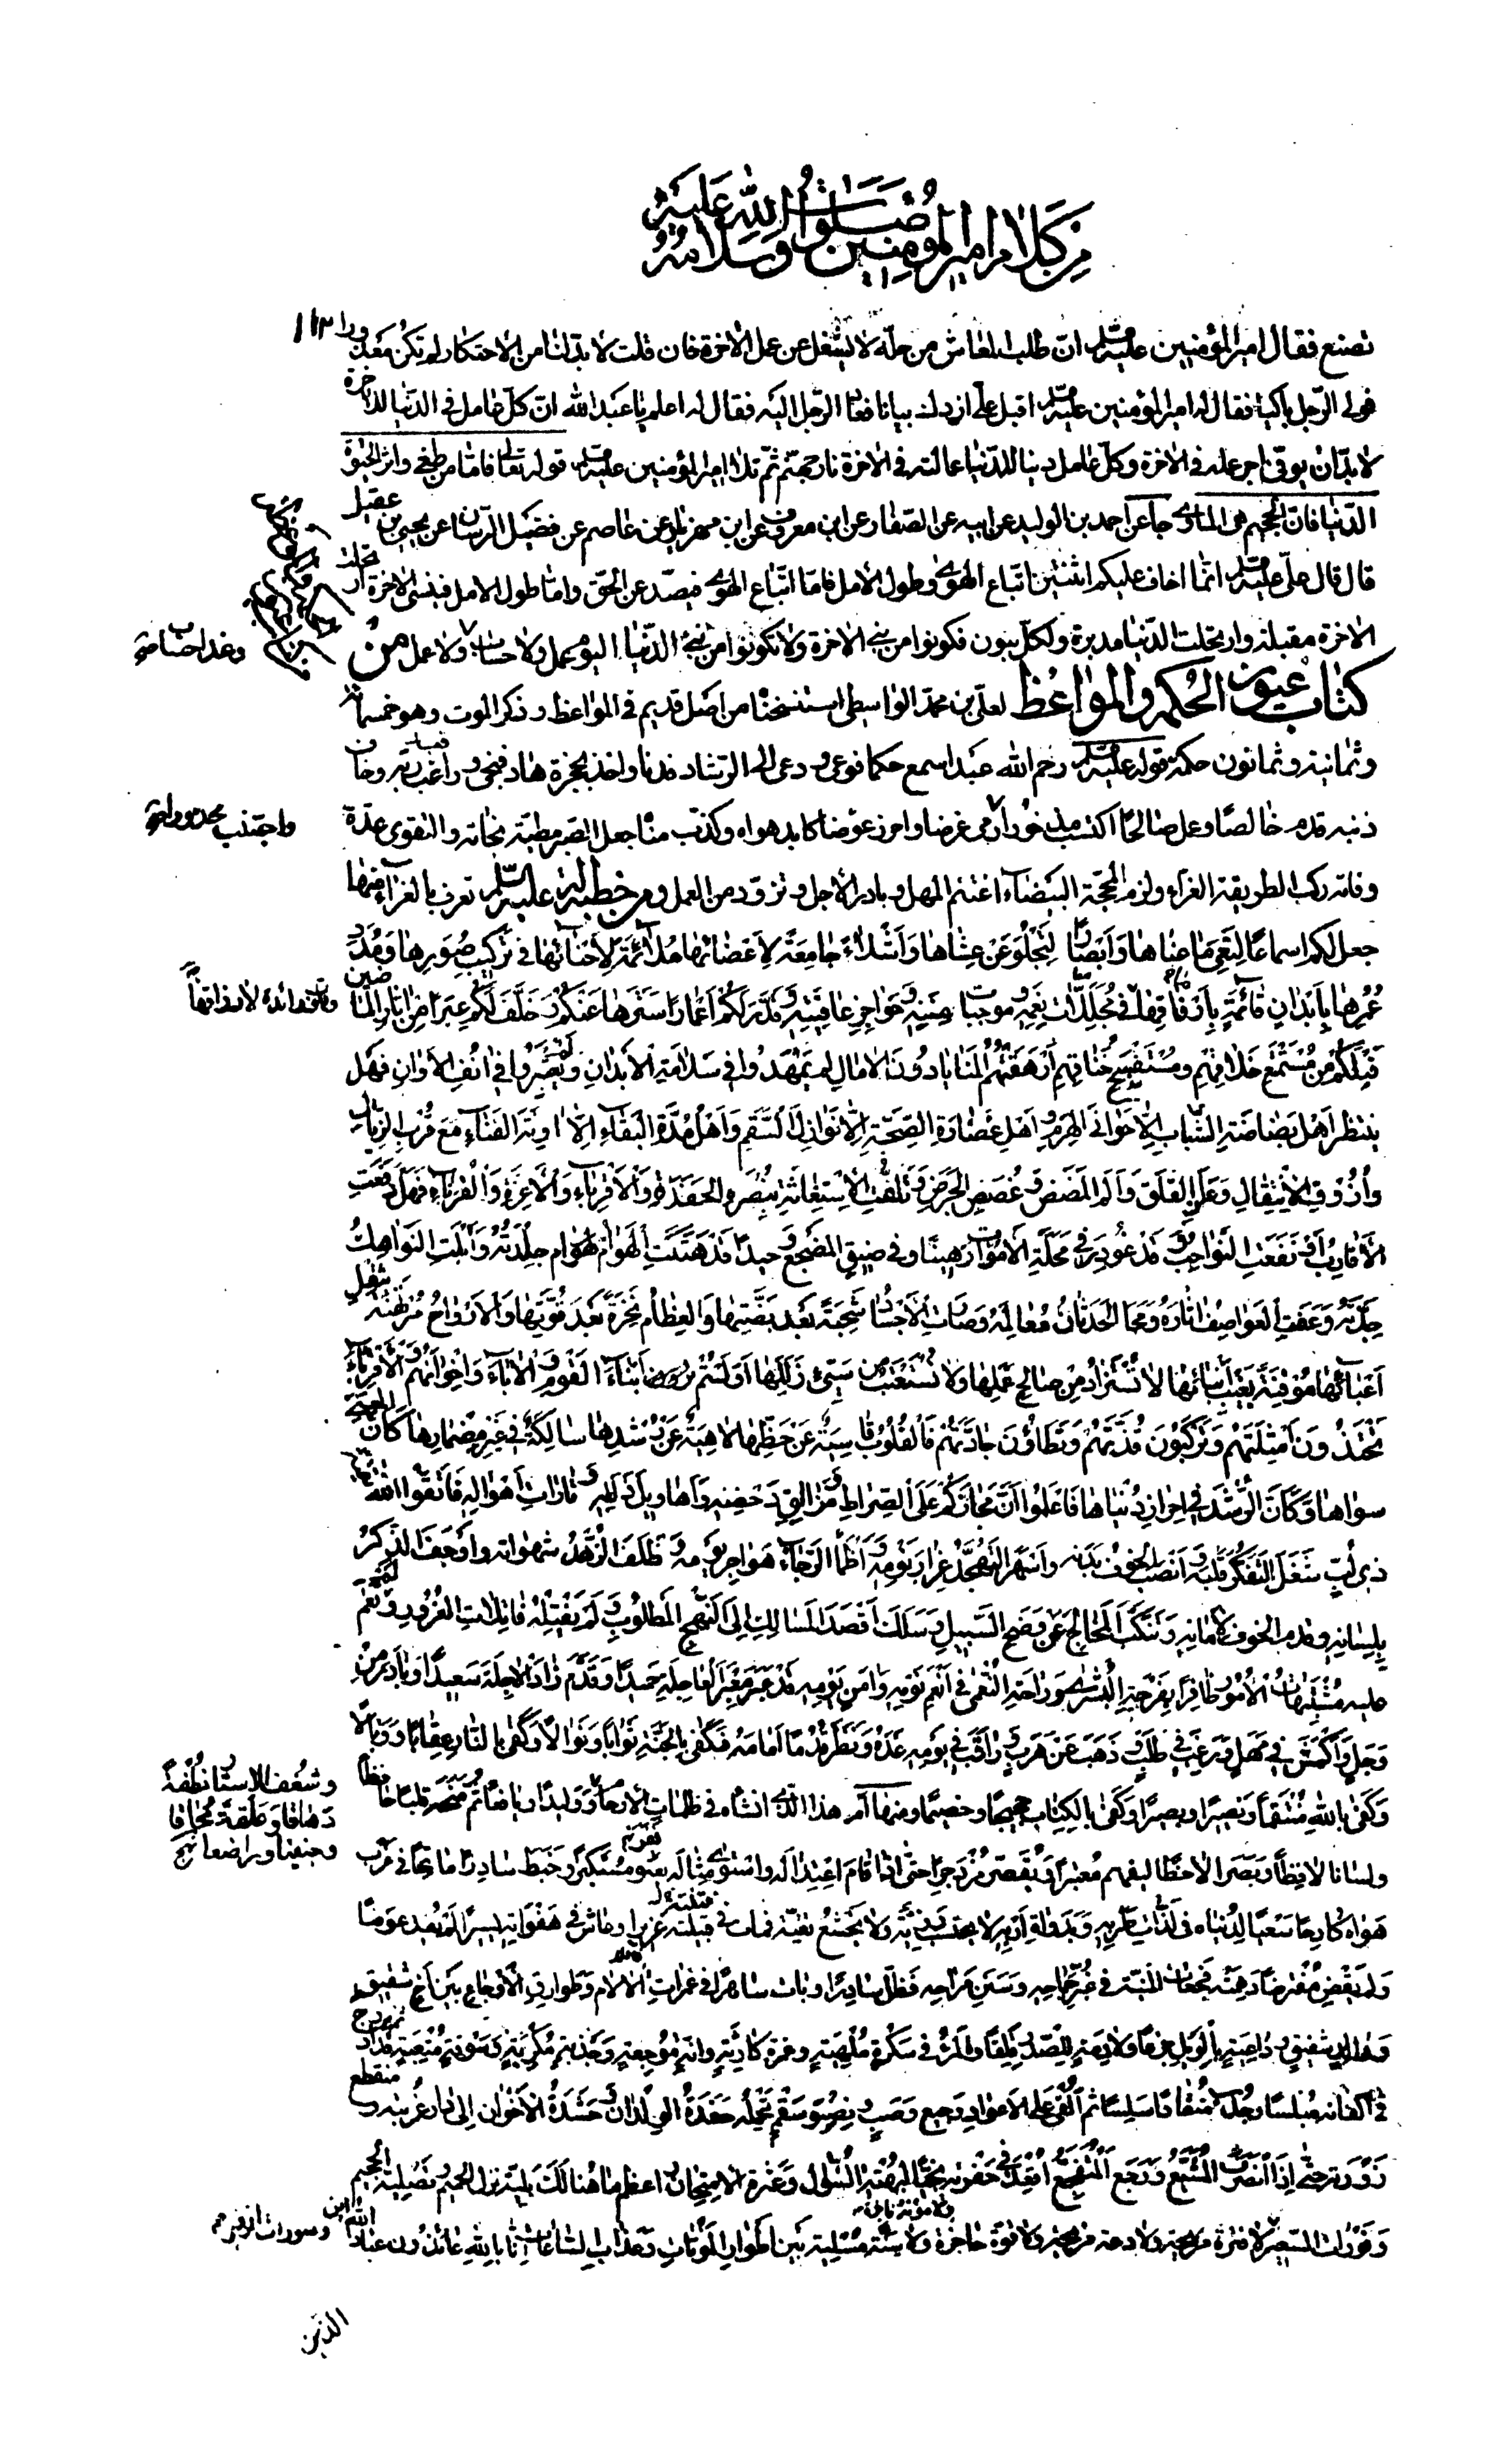 من كلام امير المؤمنين صلوات الله عليه وسلامه
تصنع فقال امير المؤمنين عليه السلم ان طلب المعاش من حلّه لا يشغل عن عمل الاخرة فان قلت لا بدّ لنا من الاحتكار لم تكن معذورا ١١٣
فولى الرّجل باكيا فقال له امير المؤمنين عليه السلم اقبل علىّ ازدك بيانا فعاد الرّجل اليه فقال له اعلم يا عبد الله انّ كلّ عامل في الدّنيا للاخرة
لا بدّ ان يوفّى اجر عمله في الاخرة وكلّ عامل دينا للدّنيا عمالته في الاخرة نار جهنّم ثمّ تلا امير المؤمنين عليه السلم قوله تعالى فامّا من طغى واثر الحيوة
الدّنيا فانّ الجحيم هي الماوى جا عن احمد بن الوليد عن ابيه عن الصفار عن ابن معروف عن ابن مهزيار عن عاصم عن فضيل الرّسان عن يحيى بن عقيل
قال قال علىّ عليه السلم انّما اخاف عليكم اثنتين اتّباع الهوى وطول الامل فامّا اتّباع الهوى فيصدّ عن الحقّ وامّا طول الامل فينسى الاخرة ارتحلت
الاخرة مقبلة وارتحلت الدّنيا مدبرة ولكلّ بنون فكونوا من بنى الاخرة ولا تكونوا من بنى الدّنيا اليوم عمل ولا حساب ولا عمل من
وغدا حساب
كتاب عيون الحكم والمواعظ لعلىّ بن محمّد الواسطى استنسخنا من اصل قديم في المواعظ وذكر الموت وهو خمسمائة
وثمانية وثمانون حكمة قوله عليه السلم رحم الله عبدا سمع حكما فوعى ودعى الى الرّشاد فدنا واخذ بحجزة هاد فنجى وراقب ربّه وخاف
ذنبه قدم خالصا وعمل صالحا اكتسب مذخورا رمى غرضا واحرز عوضا كابد هواه وكذّب مناه جعل الصّبر مطيّة نجاته والتقوى عدّة
واجتنب محذورا
وفاته ركب الطريقة الغراء ولزم المحجّة البيضاء اغتنم المهل وبادر الاجل وتزوّد من العمل ومن خطبة له عليه السّلم تعرف بالغراء منها
جعل لكم اسماعا لتعى ما عناها وابصارا لتجلو عن عشاها واشلاء جامعة لاعضائها ملائمة لاحنائها في تركيب صورها ومدد
عمرها بابدان قائمة بارفاقها في مجلّلات نعمه وموجبات مننه وحواجز عافيته وقدّر لكم اعمارا سترها عنكم وخلّف لكم عبرا من اثار الماضين
وقلوب رائدة لارزاقها
قبلكم من مستمتع خلاقهم ومستفسح خناقهم ارهقتهم المنايا دون الامال لم يمهدوا في سلامة الابدان ولم يعتبروا في انف الاوان فهل
ينتظر اهل بضاضة الشّباب الّا حوانى الهرم واهل غضارة الصّحّة الّا نوازل السّقم واهل مدّة البقاء الّا اونة الفناء مع قرب الزيال
وازوف الانتقال وعلز القلق والم المضض وغصص الجرض وتلفّت الاستغاثة بنصرة الحفدة والاقرباء والاعزة والقرناء فهل دفعت
الاقارب او نفعت النواحب وقد غودر في محلّة الاموات رهينا وفي ضيق المضجع وحيدا قد هتكت الهوام جلدته وابلت النواهك
جدّته وعفت العواصف اثاره ومحا الحدثان معالمه وصارت الاجساد شحبة بعد بضّتها والعظام نخرة بعد قوّتها والارواح مرتهنة بثقل
اعبائها موقنة بغيب انبائها لا تستزاد من صالح عملها ولا تستعتب من سيّئ زللها اولستم ترون ابناء القوم والاباء واخوانهم والاقرباء
تحتذون امثلتهم وتركبون قدّتهم وتطأون جادّتهم فالقلوب قاسية عن حظّها لاهية عن رشدها سالكة في غير مضمارها كانّ المعنىّ
سواها وكانّ الرّشد في احراز دنياها فاعلموا انّ مجازكم على الصراط ومزالق دحضه واهاويل زلله وتارات اهواله فاتّقوا الله تقيّة
ذى لبّ شغل التفكّر قلبه وانصب الخوف بدنه واسهر التهجّد غرار نومه واظمأ الرّجاء هواجر يومه وظلف الزّهد شهواته واوجف الذكر
بلسانه وقدم الخوف لامانه وتنكّب المخالج عن وضح السّبيل وسلك اقصد المسالك الى النّهج المطلوب ولم تفتله فاتلات الغرور ولم تعم
عليه مشتبهات الامور ظافرا بفرحة البشرى وراحة النّعمى في انعم نومه وامن يومه قد عبر معبر العاجلة حميدا وقدّم زاد الاجلة سعيدا وبادر من
وجل واكمش في مهل ورغب في طلب وذهب عن هرب وراقب في يومه غده ونظر قدما امامه فكفى بالجنّة ثوابا ونوالا وكفى بالنّار عقابا ووبالا
وكفى بالله منتقما ونصيرا وكفى بالكتاب حجيجا وخصيما ومنها ام هذا الّذى انشأه في ظلمات الارحام ووليدا ويافعا ثم منحه قلبا حافظا
وشغف الاستار نطفة
دهاقا وعلقة محاقا
وجنينا وراضعا
ولسانا لافظا وبصرا لاحظا ليفهم معتبرا ويقصر مزدجرا حتّى اذا قام اعتداله واستوى مثاله نفر مستكبرا وخبط سادرا ماتحا في غرب
هواه كادحا سعيا لدنياه في لذّات طربه وبدوات اربه لا يحتسب رزيّة ولا يخشع تقيّة فمات في فتنته غريرا وعاش في هفوته يسيرا لم يفد عوضا
ولم يقض مفترضا دهمته فجعات المنيّة في غبّر جماحه وسنن مراحه فظلّ سادرا وبات ساهرا في غمرات الالام وطوارق الاوجاع بين اخ شفيق
ووالد شفيق وداعية بالويل جزعا ولادمة للصّدر قلقا والمرء في سكرة ملهثة وغمرة كارثة وانّة موجعة وجذبة مكربة وسوقة متعبة ثم ادرج
في اكفانه مبلسا وجذب منقادا سلسا ثم القى على الاعواد رجيع وصب ونضو سقم تحمله حفدة الولدان وحشدة الاخوان الى دار غربته ومنقطع
زورته حتّى اذا انصرف المشيّع ورجع المتفجّع اقعد في حفرته نجيّا لبهتة السّؤال وعثرة الامتحان واعظم ما هنالك بليّة نزل الحميم وتصلية الجحيم
وفورات السّعير لا فترة مريحة ولا دعة مزيحة ولا قوّة حاجزة ولا موتة ناجزة ولا سنة مسلية بين اطوار الموتات وعذاب السّاعات انّا بالله عائذون عباد الله اين
وسورات الزفير
الذين